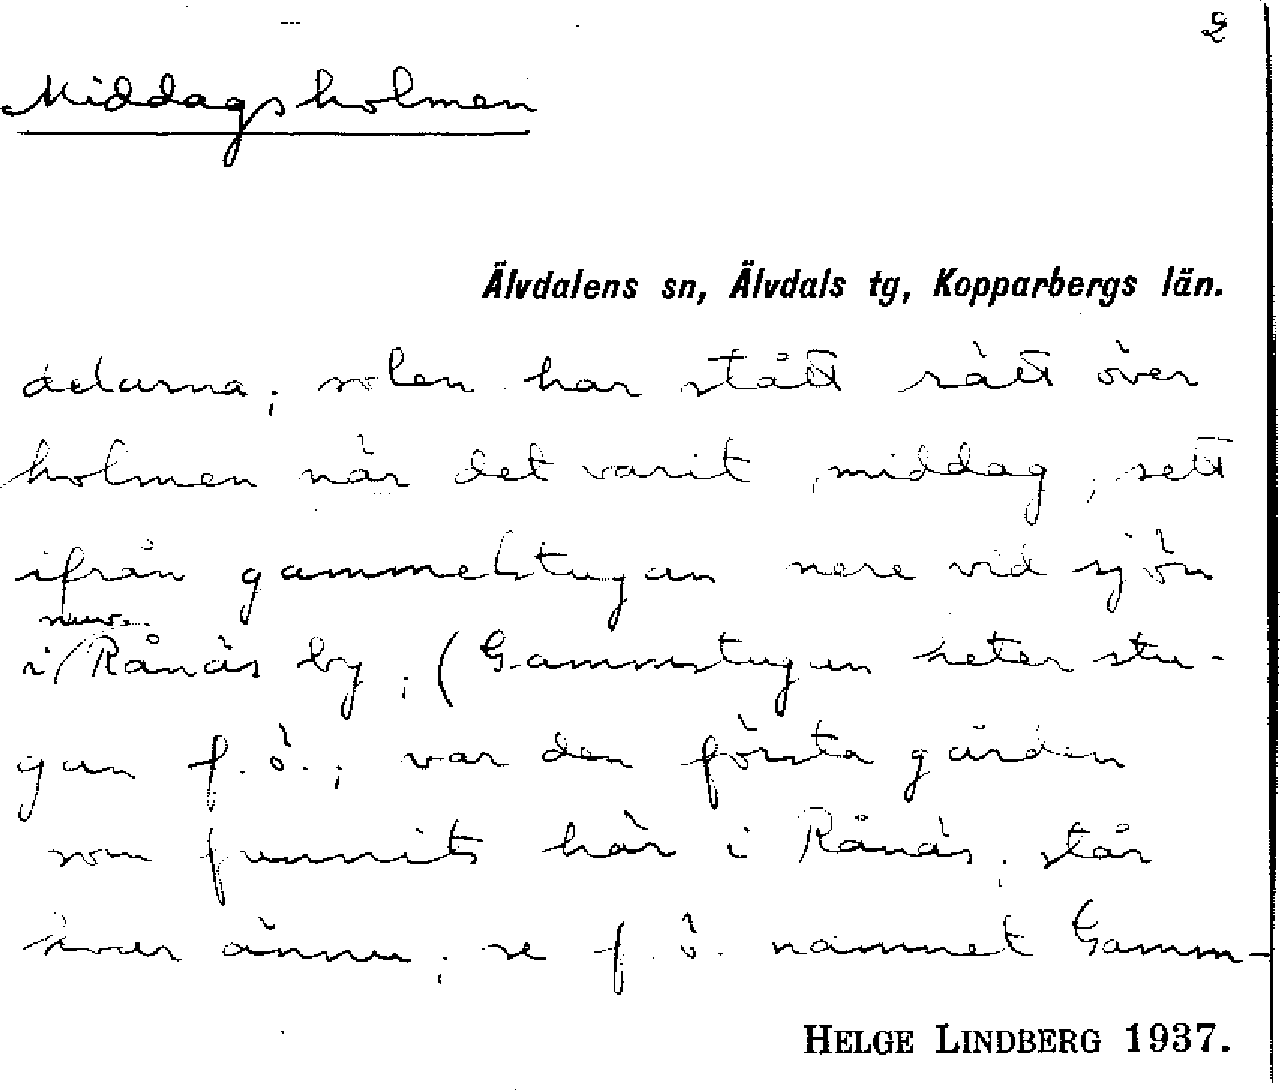 2
Middagsholmen
Älvdalens sn, Älvdals tg, Kopparbergs län.
solen har stått rätt över
holmen när det varit middag, sett
ifrån gammelstugan nere vid sjön
i Rånäs by, (Gammstugun heter stu-
gan f. ö., var den första gården
som funnits här i Rånäs, står
kvar ännu, se f. ö. namnet Gamm-
HELGE LINDBERG 1937.